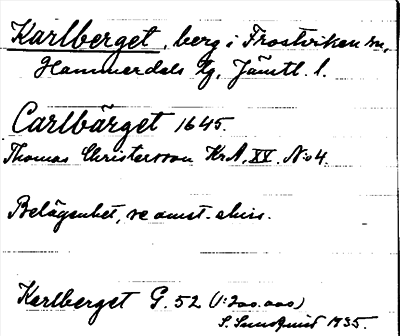 Karlberget, berg i Frostviken sn,
Hammerdals tg, Jämtl. l.
Carlbärget 1645.
Thomas Christersson Kr.A. XV. N:o 4.
Belägenhet, se omst. skiss.
Karlberget G. 52 (1:200.000)
S. Sundquist 1935.